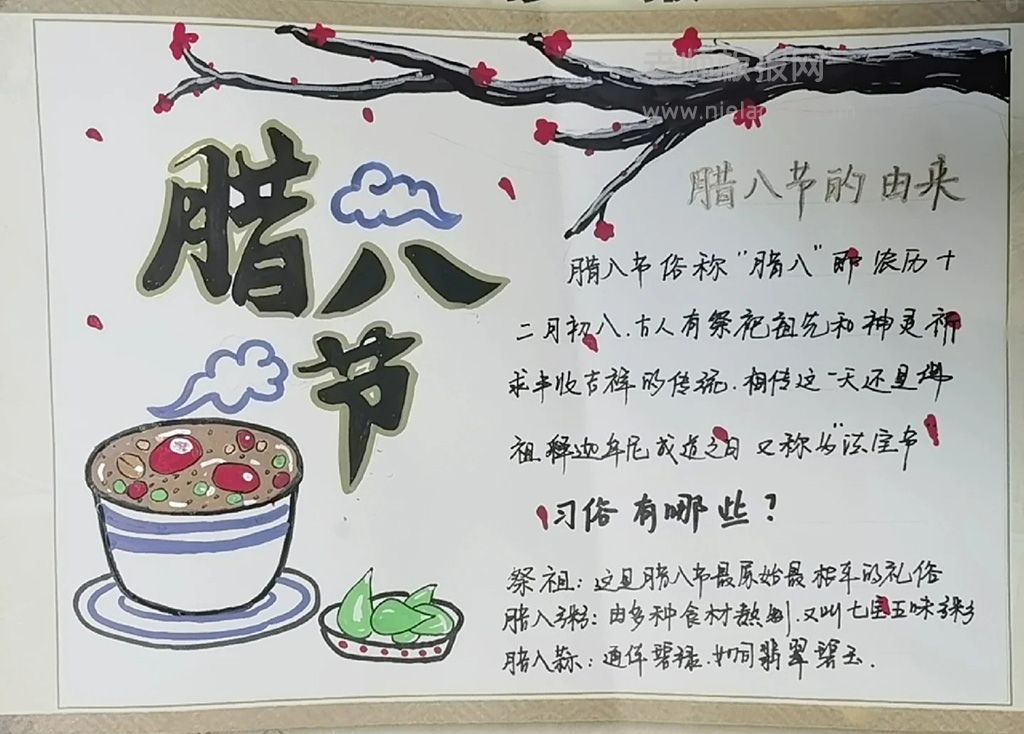 腊八节
腊八节的由来
腊八节俗称"腊八"即农历十
二月初八.古人有祭祀祖先和神灵祈
求丰收吉祥的传统.相传这一天还是佛
祖释迦牟尼成道之日又称为"法宝节"
习俗有哪些?
祭祖:这是腊八节最原始最根本的礼俗
腊八粥:由多种食材熬制.又叫七宝五味粥
腊八蒜:通体碧绿.如同翡翠碧玉.
www.nie